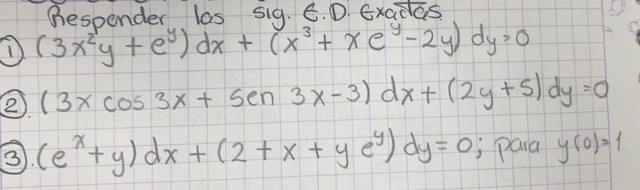 Responder las sig. E.D. Exactas
① (3x²y + e^y) dx + (x³ + xe^y - 2y) dy = 0
②. (3x cos 3x + sen 3x - 3) dx + (2y + 5) dy = 0
③. (e^x + y) dx + (2 + x + y e^y) dy = 0; para y(0) = 1